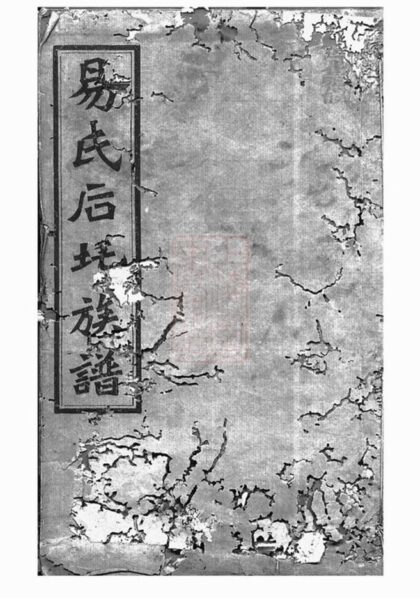 易氏后圫族譜